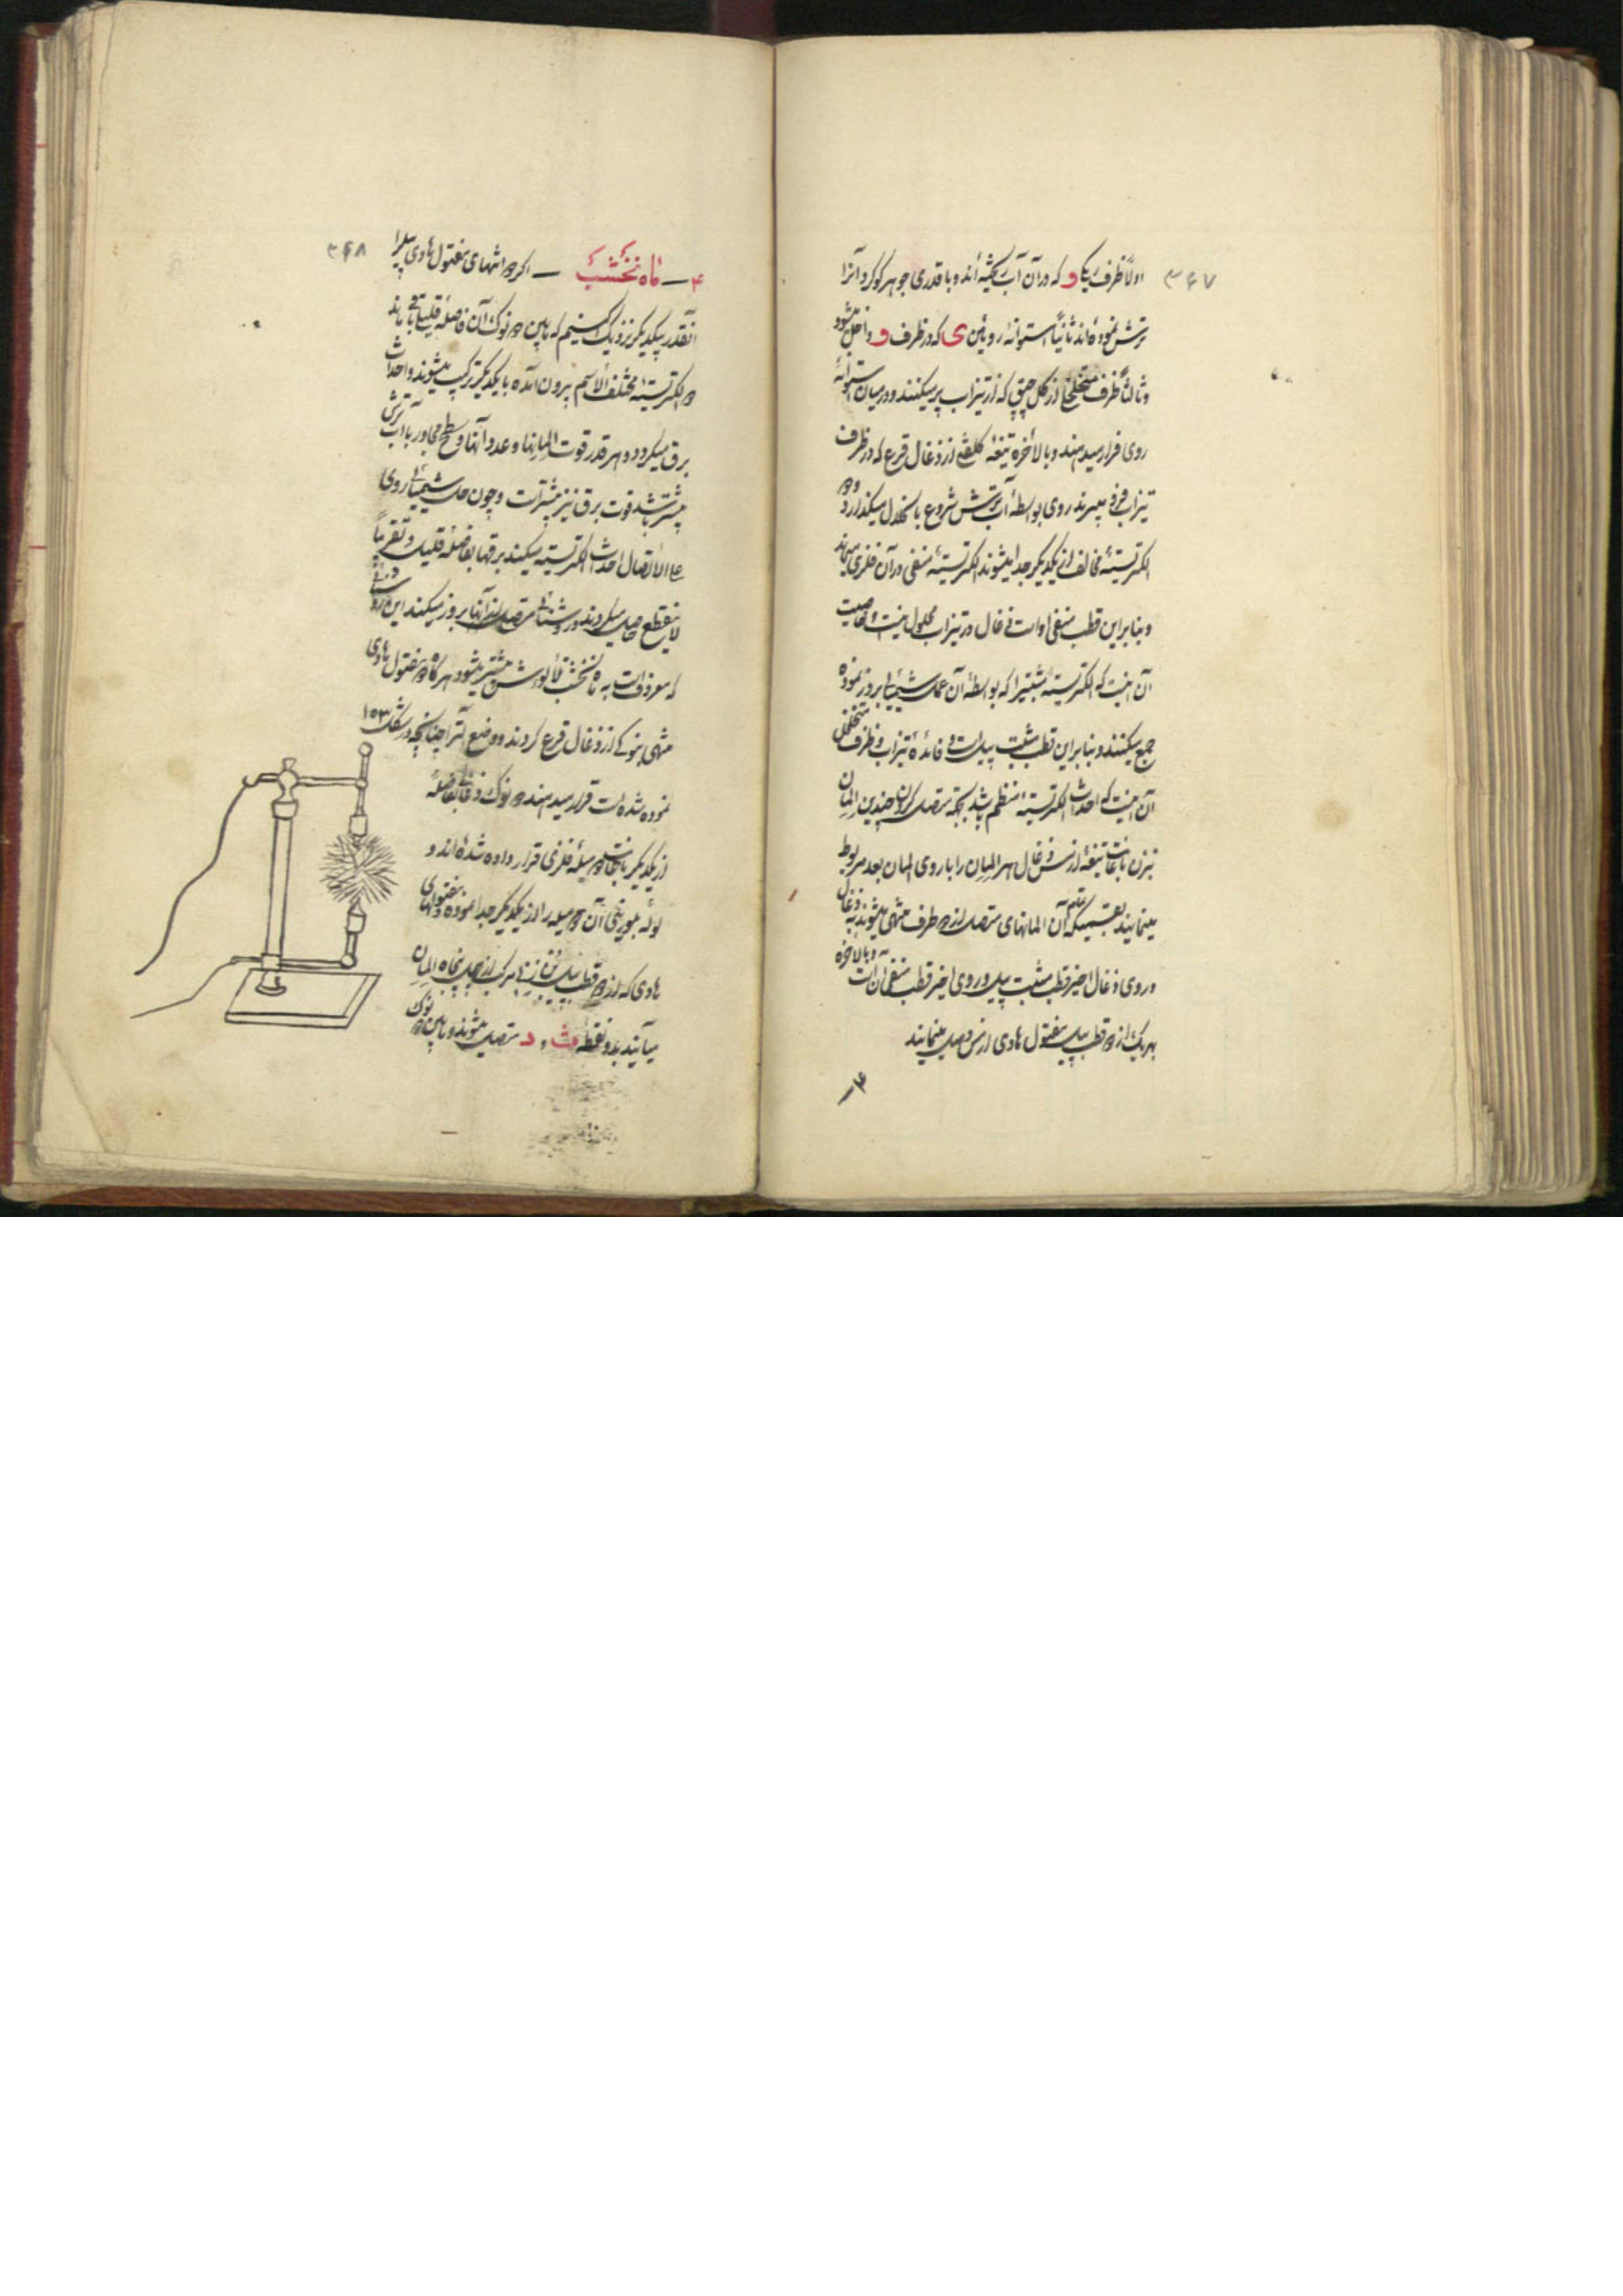 ۳۶۷
اولاً ظرف یکا و که در آن آب ریخته اند و با قدری جوهر گوگرد آنرا
ترش نموده اند ثانیاً استوانهٔ روئین ی که در ظرف و داخل میشود
و ثالثاً ظرف متخلخلی از گل چپق که از تیزاب پر میکنند و در میان استوانهٔ
روی قرار میدهند و بالاخره تیغهٔ کلفتی از زغال قرع که در ظرف
تیزاب فرو میبرند روی بواسطهٔ آب ترش شروع بانحلال میگذارد و دو
الکتریستهٔ مخالف از یکدیگر جدا میشوند الکتریستهٔ منفی در آن فلزی میماند
و بنابراین قطب منفی اوست زغال در تیزاب محلول نیست و خاصیت
آن اینست که الکتریستهٔ مثبتیرا که بواسطهٔ آن عمل شیمیائی بروز نموده
جمع میکنند و بنابراین قطب مثبت پیل است و فائدهٔ تیزاب و ظرف متخلخل
آن اینست که احداث الکتریسته منتظم باشد بجهة متصل کردن چندین المان
بنزن باعانت تیغهٔ از مس زغال هر المان را با روی المان بعد مربوط
مینمایند بقسمیکه تمام آن المانهای متصل از دو طرف منتهی میشوند به زغال
و روی زغال اخیر قطب مثبت پیل و روی اخیر قطب منفی آن است و بالاخره
بهر یک از دو قطب پیل مفتول هادی از مس وصل مینمایند
۴ــ
۳۶۸
۴ــ ماه نخشب ــ اگر دو انتهای مفتول هادی پیلرا
آنقدر بیکدیگر نزدیک کنیم که مابین دو نوک آن فاصلهٔ قلیلی باقی ماند
دو الکتریستهٔ مختلف الاسم بیرون آمده با یکدیگر ترکیب میشوند و احداث
برق میگردد و هر قدر قوت المانها و عدد آنها و سطح مجاور با آب ترش
بیشتر باشد قوت برق نیز بیشتر است و چون عمل شیمیائی روی
علی الاتصال احداث الکتریسته میکند برقها بفاصلهٔ قلیل و تقریباً
لاینقطع حاصل میگردند و روشنائی متصل از آنها بروز میکند این روشنائی
که معروفست به ماه نخشب تابش بیشتر میشود هر گاه دو مفتول هادی
منتهی بنوکی از زغال قرع گردند و وضع آنرا چنانچه در شکل ۱۵۳
نموده شده است قرار میدهند دو نوک زغالی بفاصلهٔ
از یکدیگر باعانت دو میلهٔ فلزی قرار داده شده اند و
لولهٔ بلورینی آن دو میله را از یکدیگر جدا نموده و مفتولهای
هادی که از دو قطب پیل بنزن مرکب از چهل پنجاه المان
میآیند بدو نقطهٔ ث و د متصل میشوند و مابین دو نوک